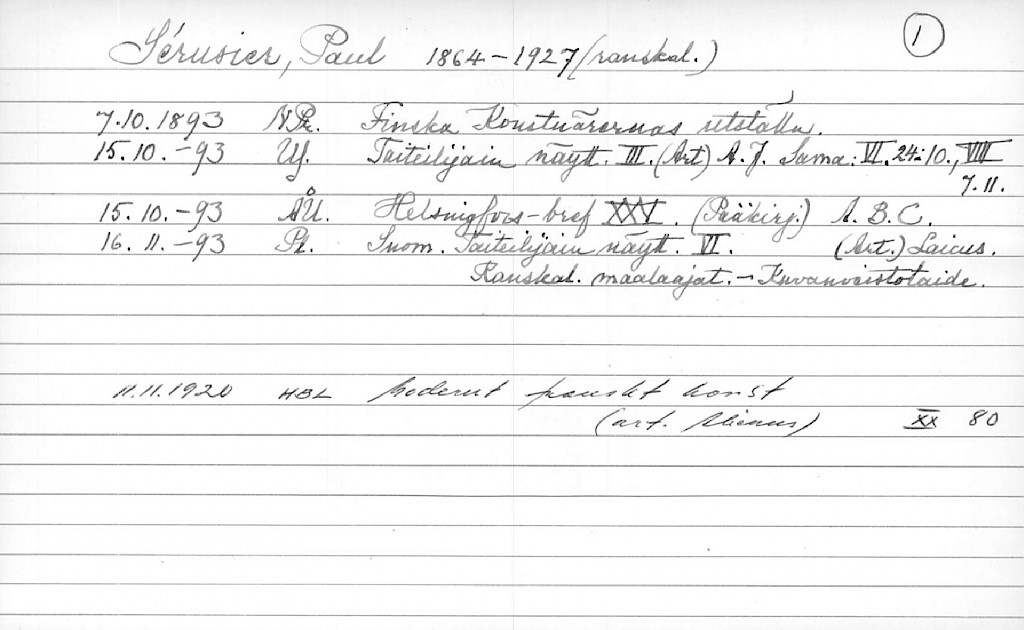 Sérusier, Paul 1864-1927 (ranskal.) 1
7.10.1893 N.Pr. Finska Konstnärernas utställn.
15.10.-93 Uf. Taiteilijain näytt. III. (Art) A. J. Sama: VI. 24:10., VIII
7.11.
15.10.-93 ÅU. Helsingfors-bref XXV. (Pääkirj.) A. B. C.
16.11.-93 Pl. Suom. Taiteilijain näytt. VI. (Art.) Laicus.
Ranskal. maalaajat. - Kuvanveistotaide.
11.11.1920 HBL Modernt franskt konst
(art. XX 80